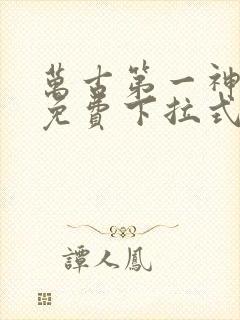 萬古第一神
免費下拉式
譚人鳳